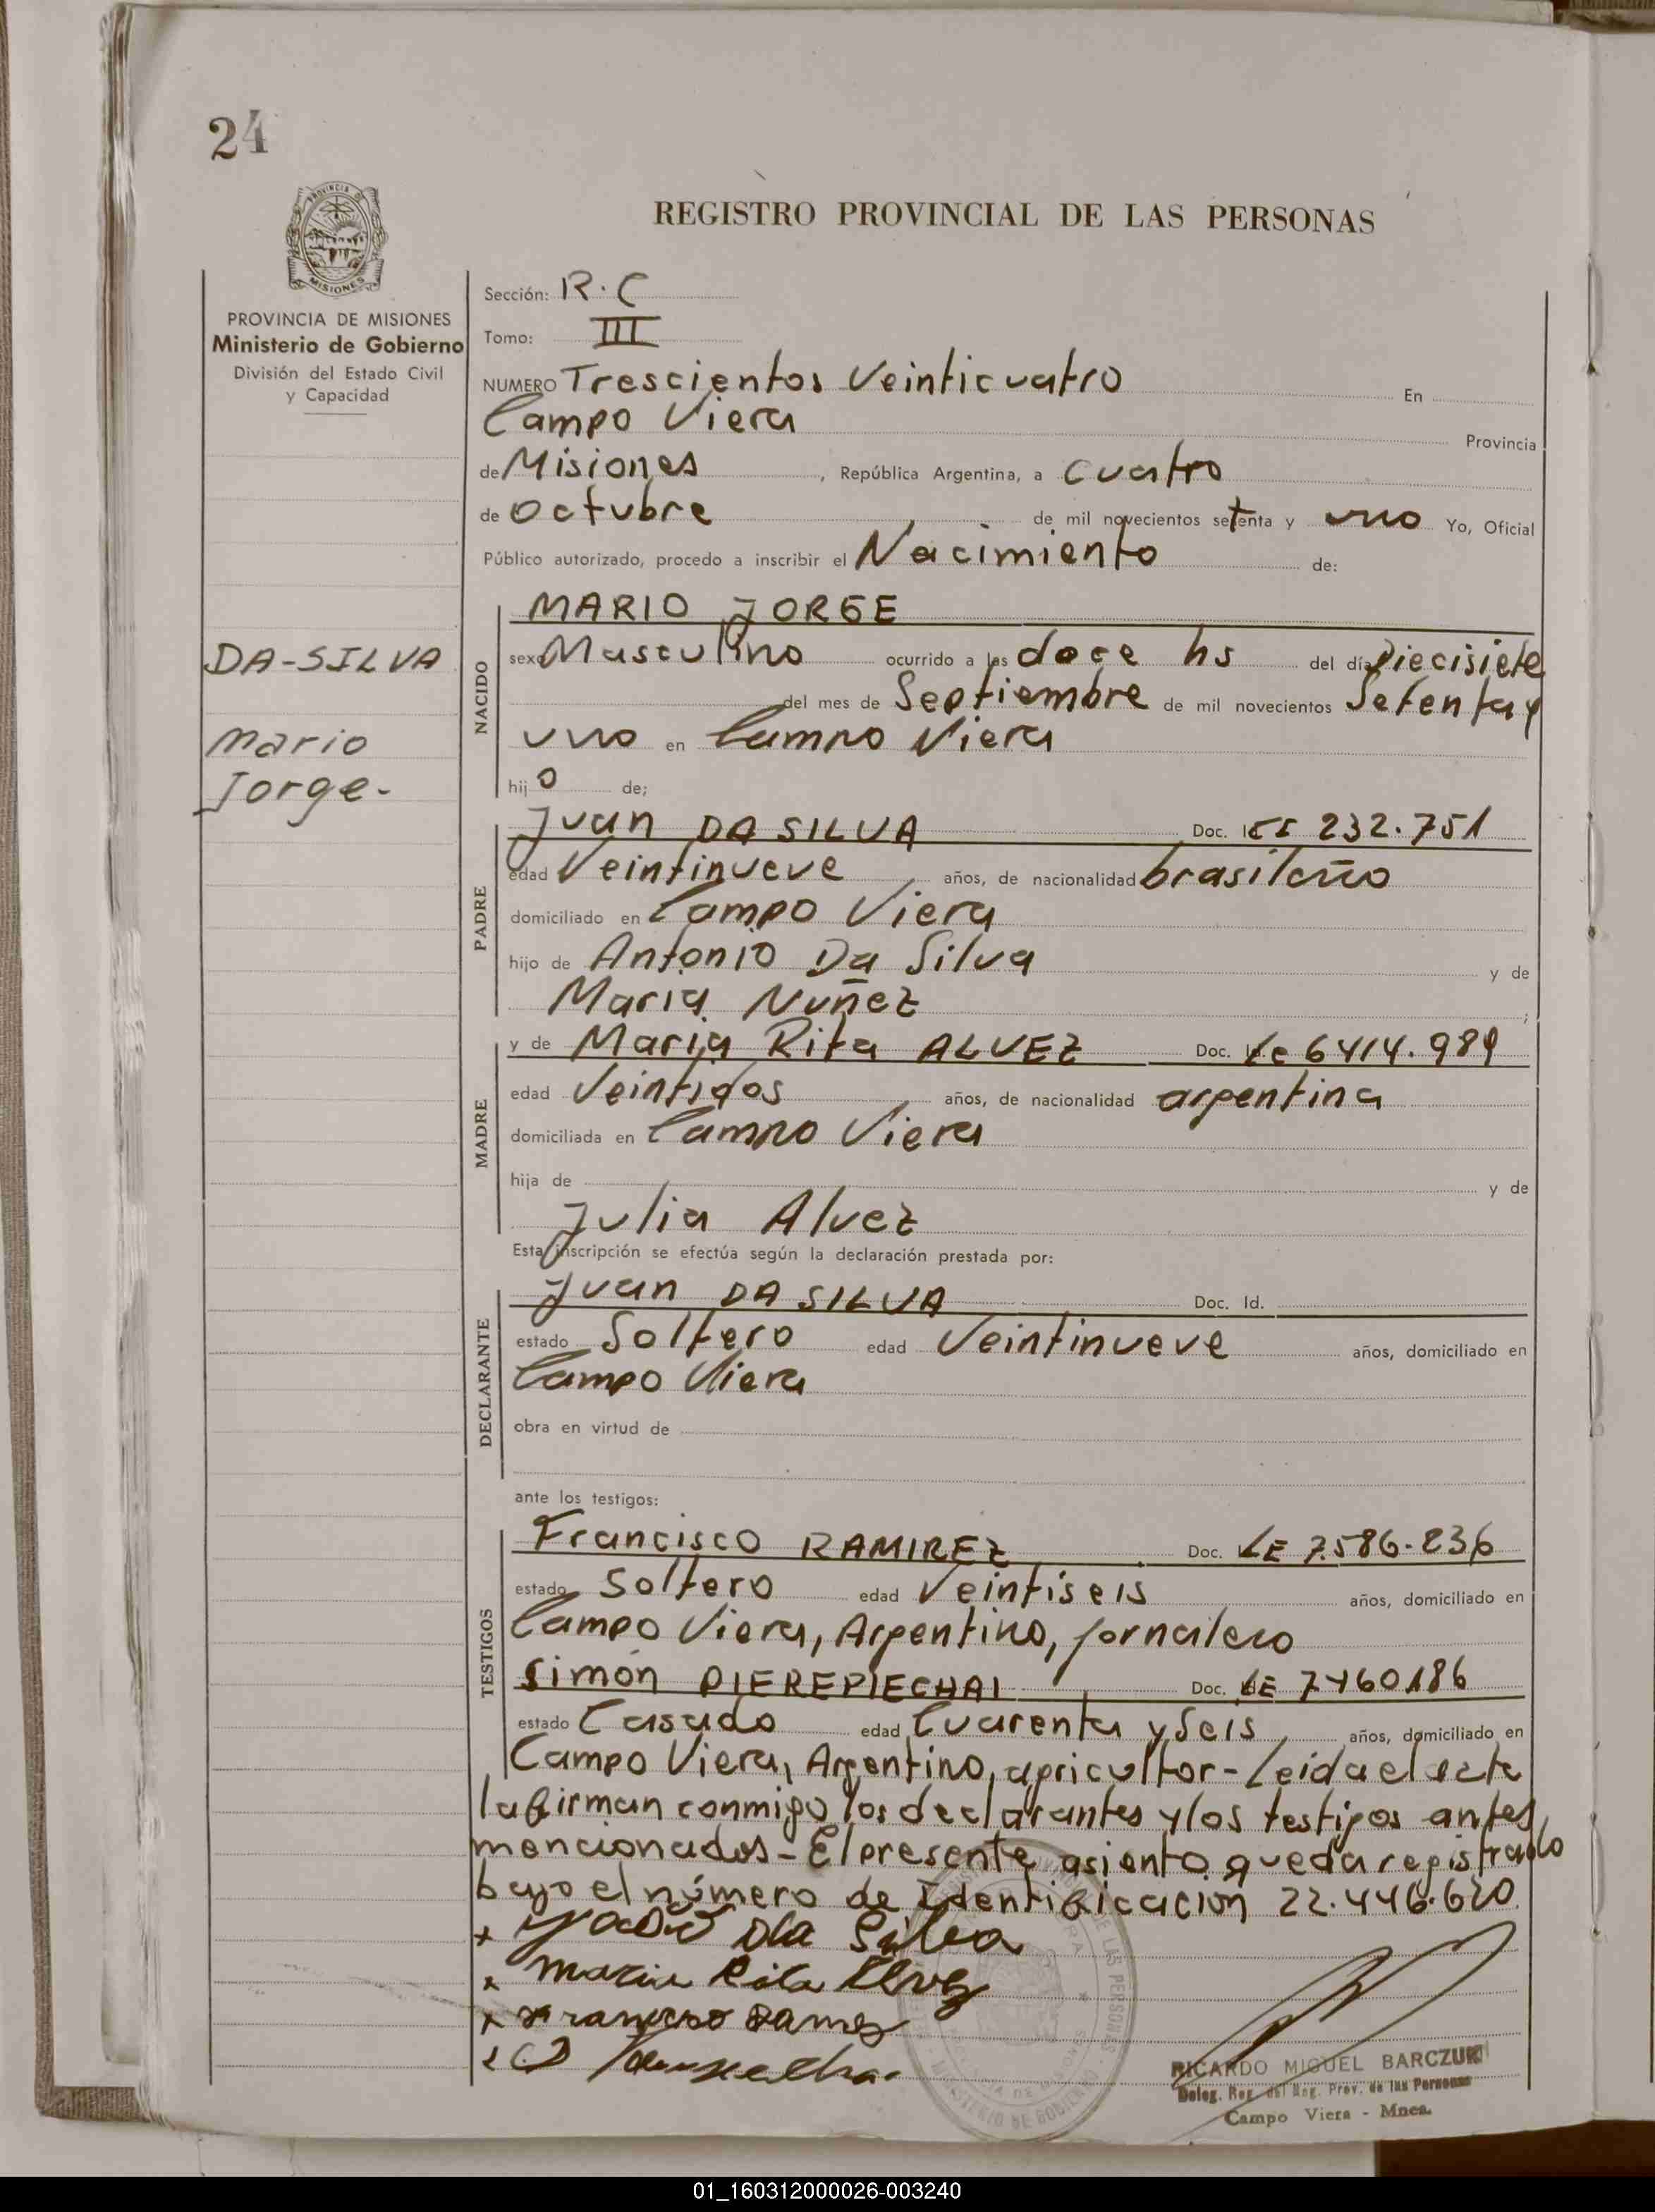 24
REGISTRO PROVINCIAL DE LAS PERSONAS
PROVINCIA DE MISIONES
Ministerio de Gobierno
División del Estado Civil
y Capacidad
DA-SILVA
Mario
Jorge-
Sección: R.C
Tomo: III
NUMERO Trescientos Veinticuatro En
Campo Viera Provincia
de Misiones, República Argentina, a cuatro
de octubre de mil novecientos setenta y uno Yo, Oficial
Público autorizado, procedo a inscribir el Nacimiento de:
NACIDO
MARIO JORGE
sexo Masculino ocurrido a las doce hs del día Diecisiete
del mes de Septiembre de mil novecientos Setenta y
uno en Campo Viera
hijo de;
PADRE
Juan DA SILVA Doc. 232.751
edad Veintinueve, años, de nacionalidad brasileño
domiciliado en Campo Viera
hijo de Antonio Da Silva y de
Maria Nuñez;
MADRE
y de Maria Rita ALVEZ Doc. Lc 6414.989
edad Veintidos, años, de nacionalidad argentina
domiciliada en Campo Viera
hija de y de
Julia Alvez
Esta inscripción se efectúa según la declaración prestada por:
DECLARANTE
Juan DA SILVA Doc. Id.
estado Soltero edad Veintinueve años, domiciliado en
Campo Viera
obra en virtud de
ante los testigos:
TESTIGOS
Francisco RAMIREZ Doc. LE 7.586.236
estado Soltero edad Veintiseis años, domiciliado en
Campo Viera, Argentino, jornalero
Simón PIEREPIECHAI Doc. LE 7460186
estado Casado edad Cuarenta y Seis, años, domiciliado en
Campo Viera, Argentino, agricultor-Leida el acta
la firman conmigo los declarantes y los testigos antes
mencionados-El presente asiento queda registrado
bajo el número de Identificación 22.446.620
x Da Silva
x Maria Rita Alvez
x Francisco Ramirez
RICARDO MIGUEL BARCZUK
Deleg. Reg. del Reg. Prov. de las Personas
Campo Viera - Mnes.
01_160312000026-003240